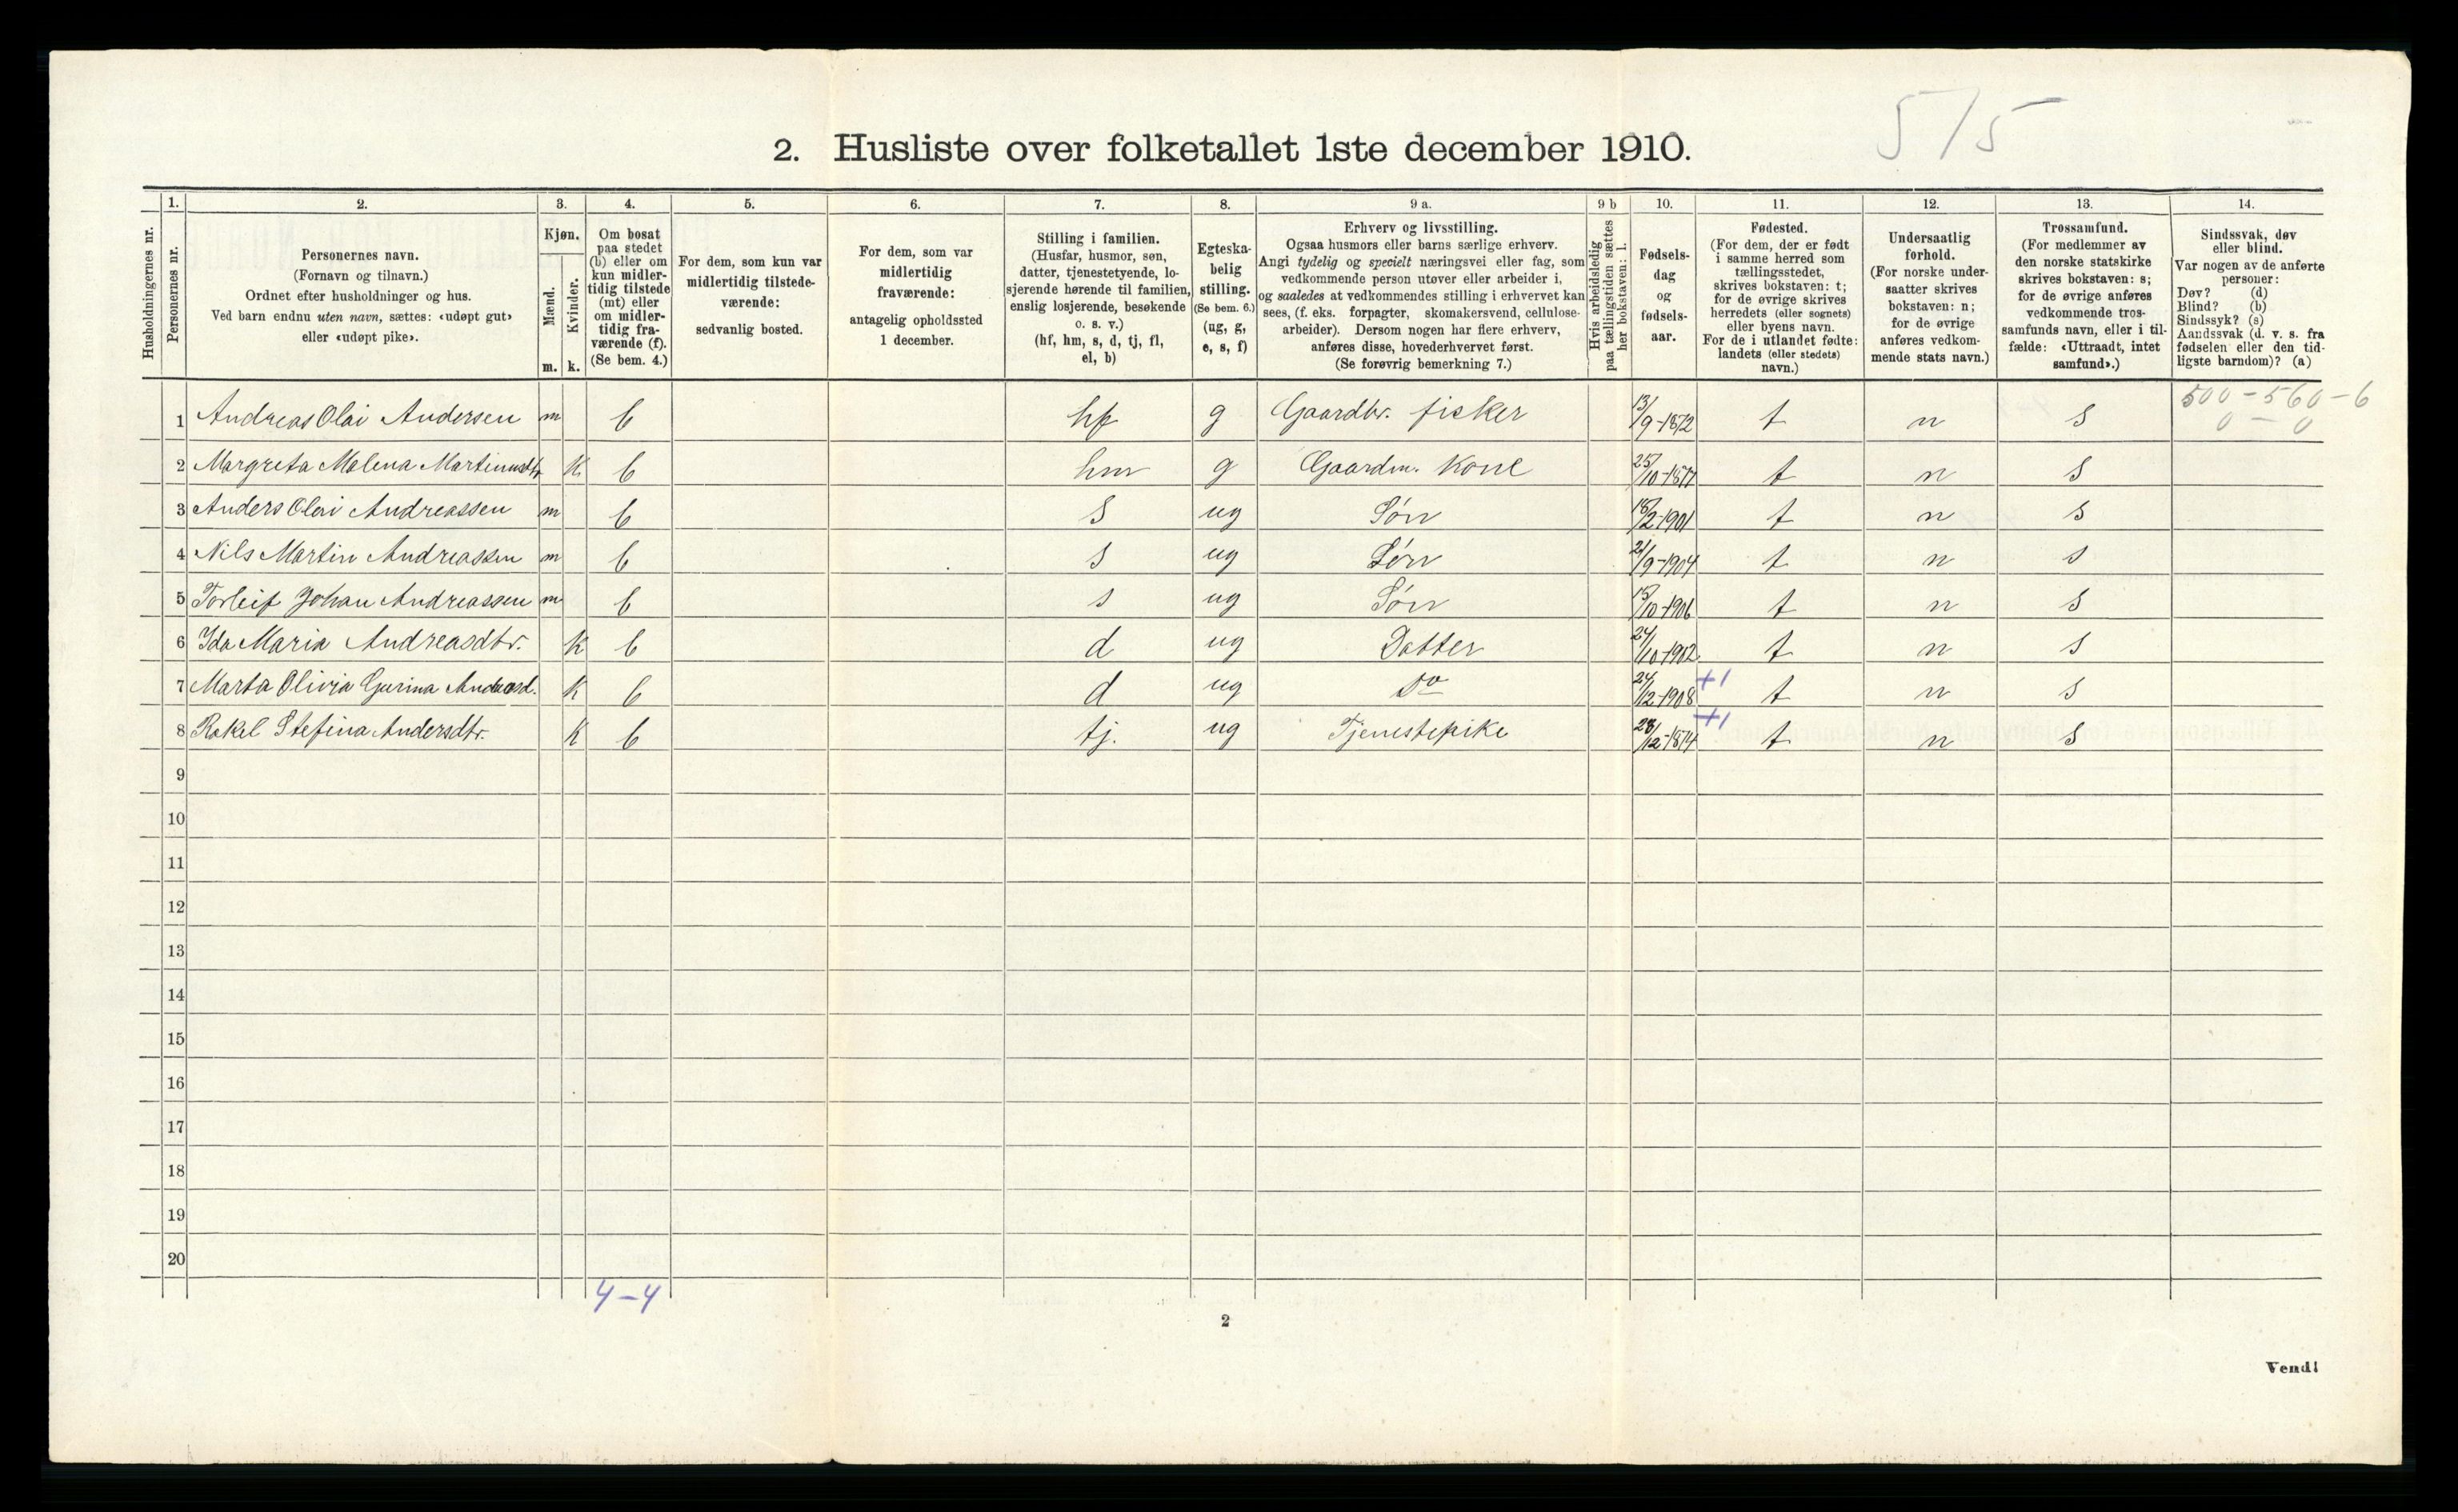 5/5
2. Husliste over folketallet 1ste december 1910.
1. 2. 3. 4. 5. 6. 7. 8. 9 a. 9 b 10. 11. 12. 13. 14.
Husholdningernes nr.
Personernes nr.
Personernes navn.
(Fornavn og tilnavn.)
Ordnet efter husholdninger og hus.
Ved barn endnu uten navn, sættes: «udøpt gut»
eller «udøpt pike».
Kjøn.
Mænd.
Kvinder.
m. k.
Om bosat
paa stedet
(b) eller om
kun midler-
tidig tilstede
(mt) eller
om midler-
tidig fra-
værende (f).
(Se bem. 4.)
For dem, som kun var
midlertidig tilstede-
værende:
sedvanlig bosted.
For dem, som var
midlertidig
fraværende:
antagelig opholdssted
1 december.
Stilling i familien.
(Husfar, husmor, søn,
datter, tjenestetyende, lo-
sjerende hørende til familien,
enslig losjerende, besøkende
o. s. v.)
(hf, hm, s, d, tj, fl,
el, b)
Egteska-
belig
stilling.
(Se bem. 6.)
(ug, g,
e, s, f)
Erhverv og livsstilling.
Ogsaa husmors eller barns særlige erhverv.
Angi tydelig og specielt næringsvei eller fag, som
vedkommende person utøver eller arbeider i,
og saaledes at vedkommendes stilling i erhvervet kan
sees, (f. eks. forpagter, skomakersvend, cellulose-
arbeider). Dersom nogen har flere erhverv,
anføres disse, hovederhvervet først.
(Se forøvrig bemerkning 7.)
Hvis arbeidsledig
paa tællingstiden sættes
her bokstaven: l.
Fødsels-
dag
og
fødsels-
aar.
Fødested.
(For dem, der er født
i samme herred som
tællingsstedet,
skrives bokstaven: t;
for de øvrige skrives
herredets (eller sognets)
eller byens navn.
For de i utlandet fødte:
landets (eller stedets)
navn.)
Undersaatlig
forhold.
(For norske under-
saatter skrives
bokstaven: n;
for de øvrige
anføres vedkom-
mende stats navn.)
Trossamfund.
(For medlemmer av
den norske statskirke
skrives bokstaven: s;
for de øvrige anføres
vedkommende tros-
samfunds navn, eller i til-
fælde: «Uttraadt, intet
samfund».)
Sindssvak, døv
eller blind.
Var nogen av de anførte
personer:
Døv? (d)
Blind? (b)
Sindssyk? (s)
Aandssvak (d. v. s. fra
fødselen eller den tid-
ligste barndom)? (a)
500 - 560 - 6
0 - 0
1 Andreas Olai Andersen m b hf g Gaardbr. fisker 13/9-1872 t n s
2 Margreta Malena Martinusdtr K b hm g Gaardm. Kone 25/10-1877 t n s
3 Anders Olai Andreassen m b s ug Søn 18/2-1901 t n s
4 Nils Martin Andreassen m b s ug Søn 21/9-1904 t n s
5 Torleif Johan Andreassen m b s ug Søn 15/10-1906 t n s
6 Ida Maria Andreasdtr. K b d ug Datter 24/10-1902 t n s
7 Marta Olivia Gurina Andreasd. K b d ug Do 24/12-1908 +1 t n s
8 Rakel Stefina Andersdtr. K b tj. ug Tjenestepike 28/12-1874 +1 t n s
9
10
11
12
13
14
15
16
17
18
19
20
4-4
2
Vend!